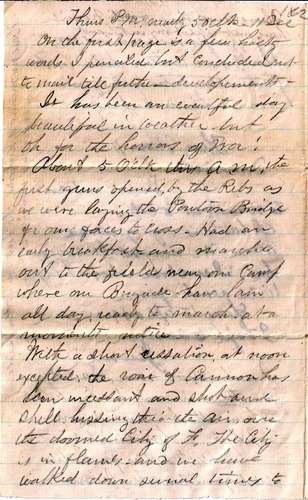 Thurs P.M. nearly 5 Oclk - 11 Dec
On the first page is a few hasty
words I penciled but concluded not
to mail till further developements -
It has been an eventful day
beautiful in weather but
oh for the horrors of War!
About 5 Oclk this A.M. the
first guns opened, by the Rebs as
we were laying the Pontoon Bridge
for our forces to cross - Had an
early breakfast - and marched
out to the fields near our Camp
where our Brigade have lain
all day, ready to march at a
moments notice.
With a short cessation at noon
excepted, the roar of Cannon has
been incessant and shot and
shell, hissing thro' the air, over
the doomed City of F. The City
is in flames - and we have
walked down several times to